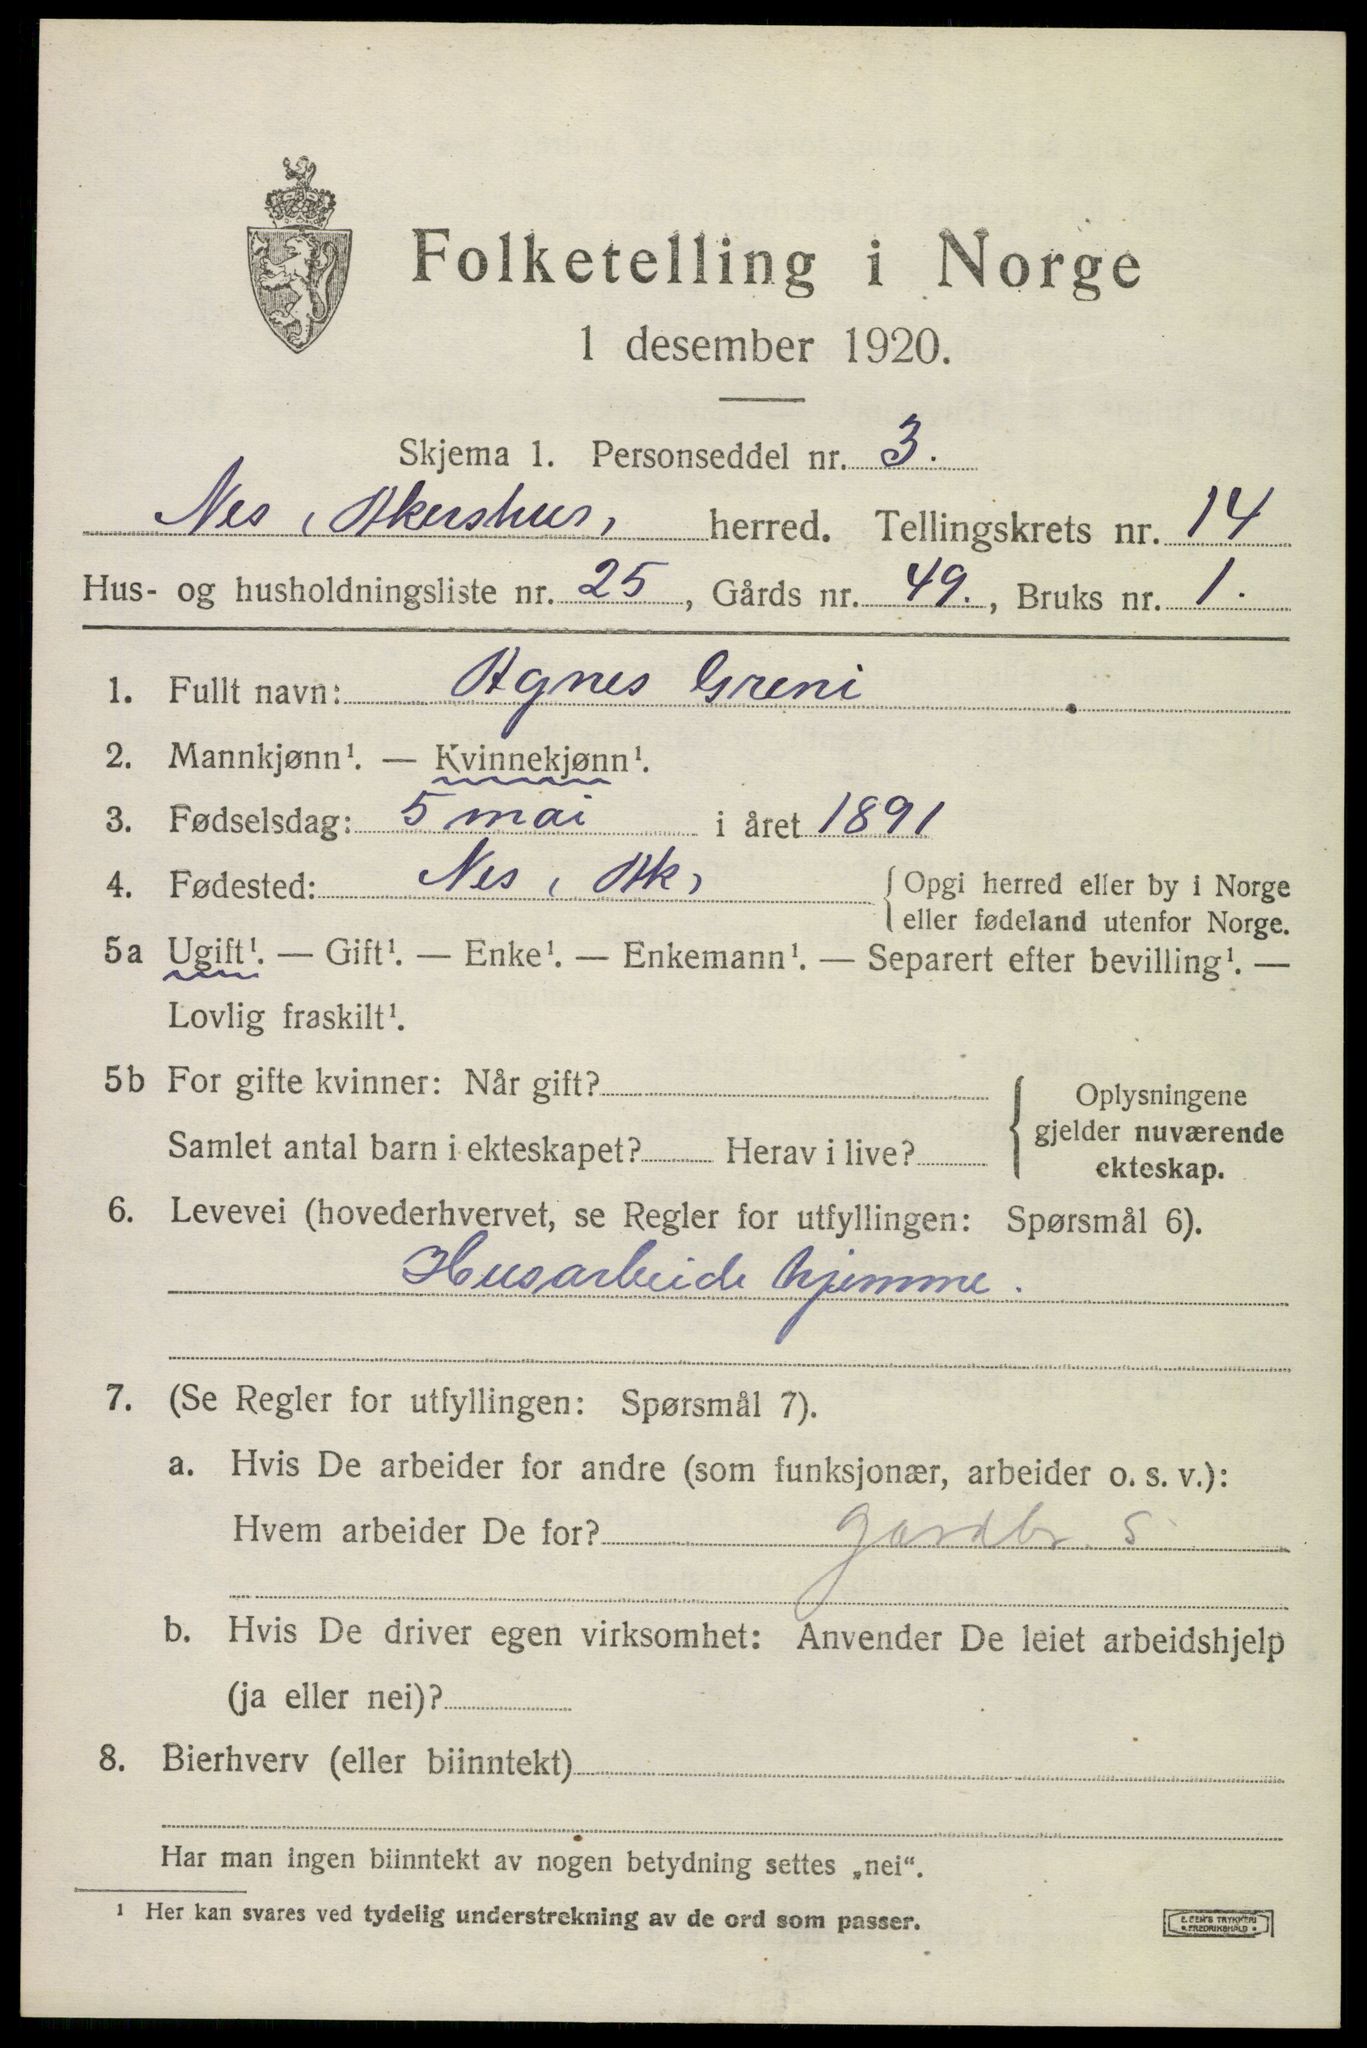 Folketelling i Norge
1 desember 1920.
Skjema 1. Personseddel nr. 3.
Nes, Akershus, herred. Tellingskrets nr. 14
Hus- og husholdningsliste nr. 25, Gårds nr. 49., Bruks nr. 1.
1. Fullt navn: Agnes Greni
2. Mannkjønn¹. — Kvinnekjønn¹.
3. Fødselsdag: 5 mai i året 1891
4. Fødested: Nes, Ak,
{ Opgi herred eller by i Norge
eller fødeland utenfor Norge.
5a Ugift¹. — Gift¹. — Enke¹. — Enkemann¹. — Separert efter bevilling¹. —
Lovlig fraskilt¹.
5b For gifte kvinner: Når gift?
Samlet antal barn i ekteskapet? Herav i live?
{ Oplysningene
gjelder nuværende
ekteskap.
6. Levevei (hovederhvervet, se Regler for utfyllingen: Spørsmål 6).
Husarbeide hjemme.
7. (Se Regler for utfyllingen: Spørsmål 7).
a. Hvis De arbeider for andre (som funksjonær, arbeider o. s. v.):
Hvem arbeider De for? Gardbr. S
b. Hvis De driver egen virksomhet: Anvender De leiet arbeidshjelp
(ja eller nei)?
8. Bierhverv (eller biinntekt)
Har man ingen biinntekt av nogen betydning settes „nei“.
¹ Her kan svares ved tydelig understrekning av de ord som passer.
E. SEM'S TRYKKERI
FREDRIKSHALD